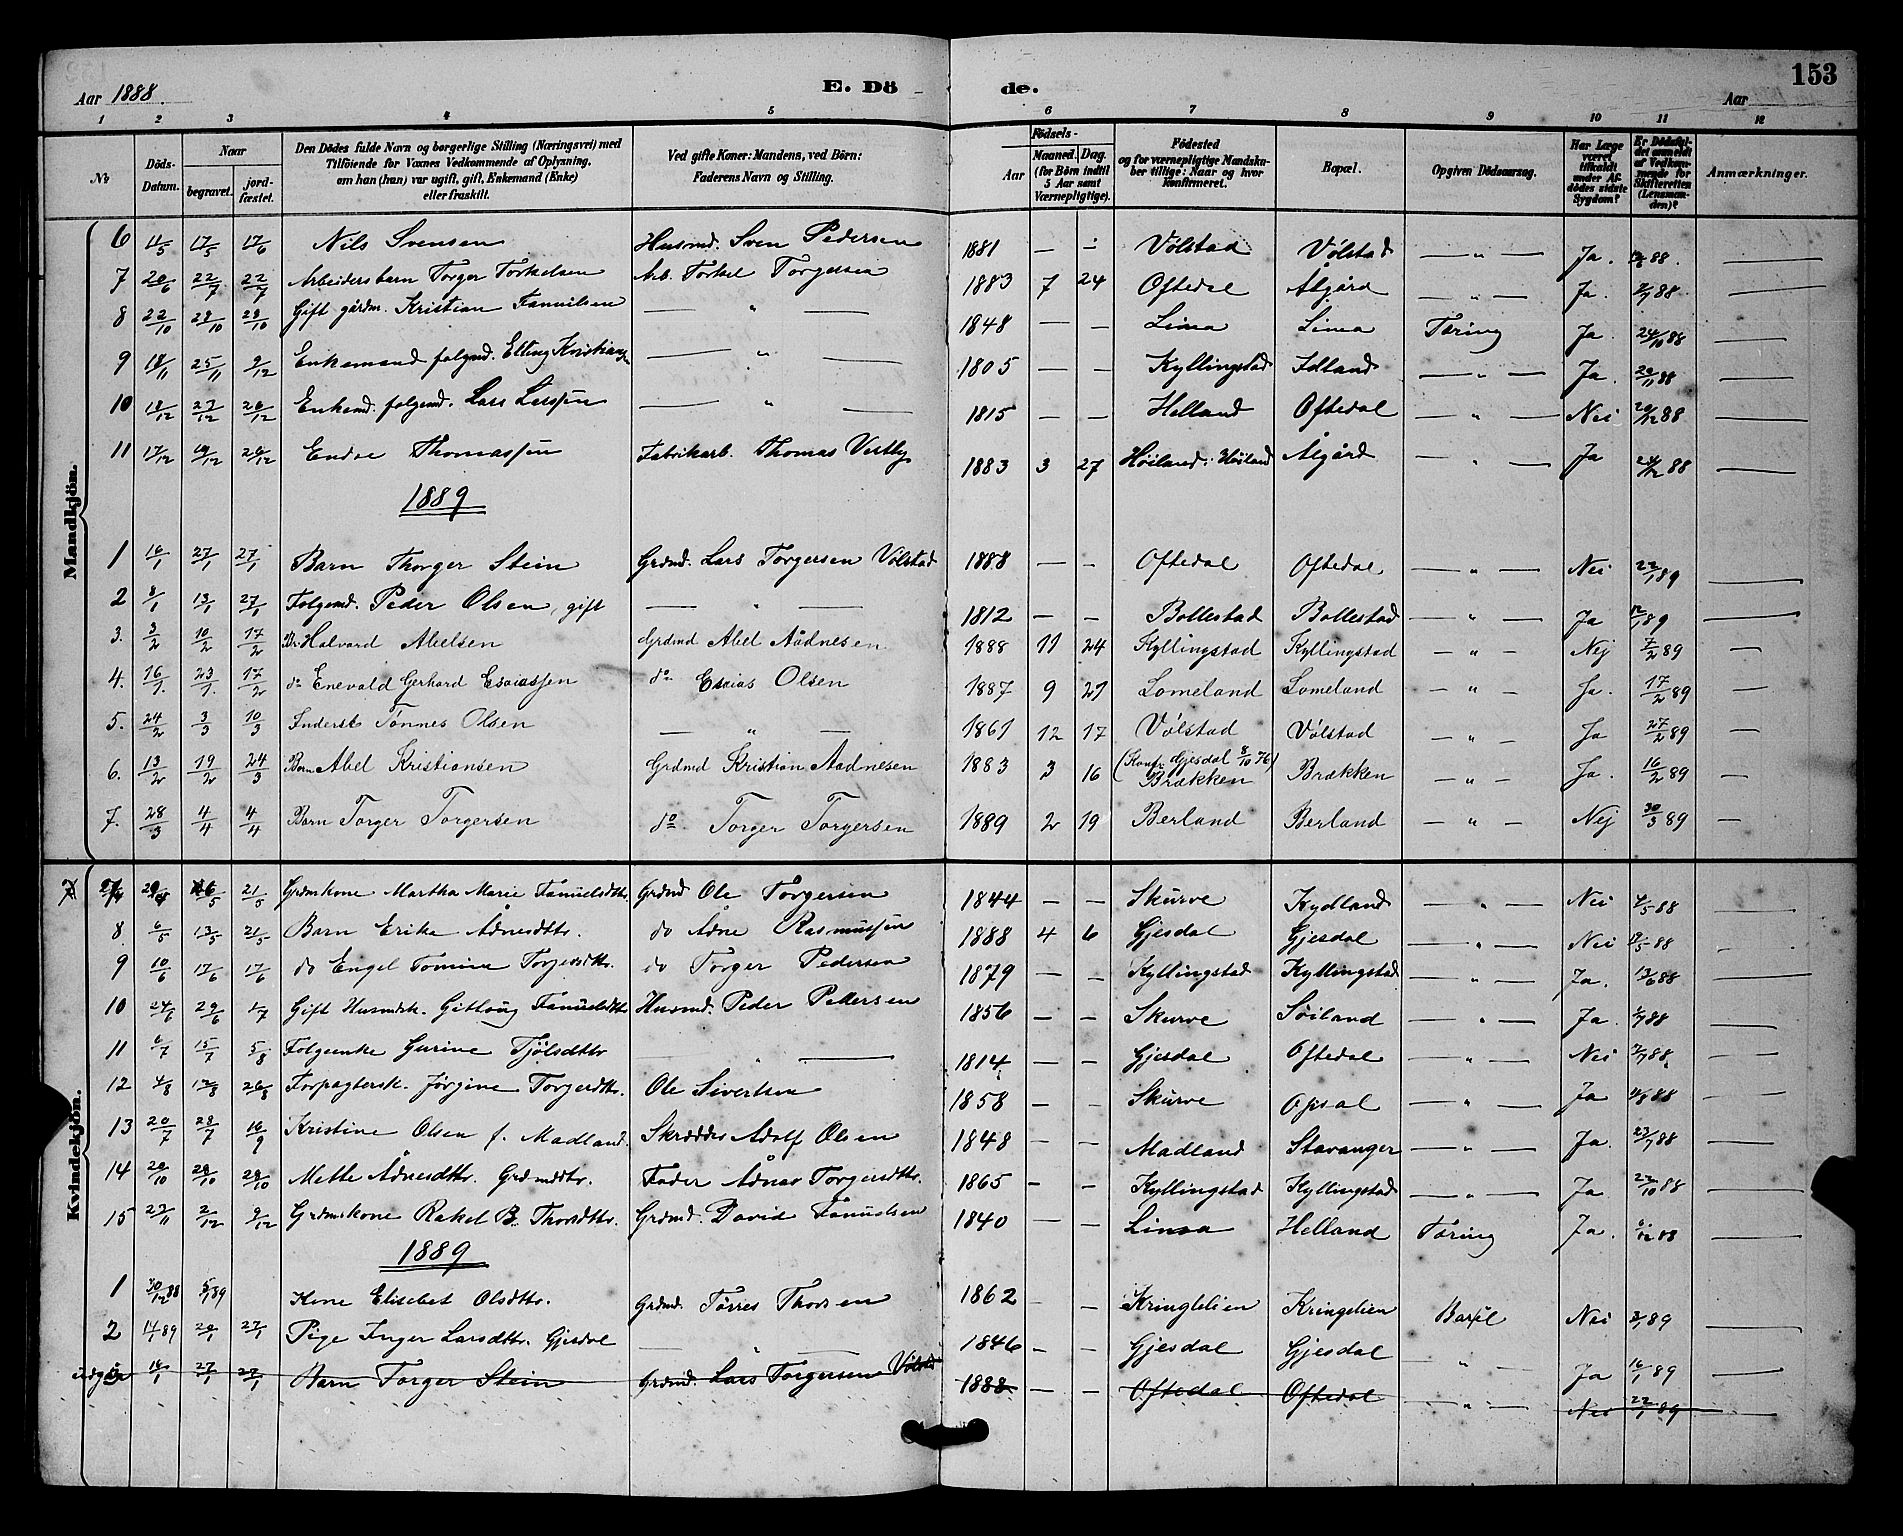 153
Aar 1888. E. Dö de. Aar
1 2 3 4 5 6 7 8 9 10 11 12
№ Döds-Datum. Naar begravet. jord-fæstet. Den Dödes fulde Navn og borgerlige Stilling (Næringsvei) med Tilföiende for Voxnes Vedkommende af Oplysning, om han (hun) var ugift, gift, Enkemand (Enke) eller fraskilt. Ved gifte Koner: Mandens, ved Börn: Faderens Navn og Stilling. Födsels- Aar Maaned. Dag. (for Börn indtil 5 Aar samt Værnepligtige). Födested og for værnepligtige Mandskaber tillige: Naar og hvor Konfirmeret. Bopæl. Opgiven Dödsaarsag. Har Læge været tilkaldt under Afdödes sidste Sygdom? Er Dödsfaldet anmeldt af Vedkommende for Skifteretten (Lensmanden)? Anmærkninger.
Mandkjön.
6 11/5 17/5 17/6 Nils Svensen Husmd. Sven Pedersen 1881 — — Vølstad Vølstad — " — Ja. 88. —
7 20/6 22/7 22/7 Arbeidersbarn Torger Torkelsen Arb. Torkel Torgersen 1883 7 24 Oftedal Ålgård — " — Ja. 2/7 88 —
8 22/10 28/10 28/10 Gift gårdm. Kristian Fanuilsen — " — 1848 — — Lima Lima Tæring Ja. 24/10 88 —
9 18/11 25/11 9/12 Enkemand folgmd. Elling Kristiansen — " — 1805 — — Kyllingstad Idland — " — Ja. 20/11 88 —
10 18/12 27/12 26/12 Enkemd. folgemd. Lars Larssen — " — 1815 — — Helland Oftedal — " — Nei 20/12 88 —
11 17/12 19/12 26/12 Endre Thomassen Fabrikarb. Thomas 1883 3 27 Høiland i Høiland Ålgård — " — Ja 24/12 88 —
1889
1 16/1 27/1 27/1 Barn Thorger Stein Grdmd. Lars Torgersen Vølstad 1888 — — Oftedal Oftedal — " — Nei 22/1 89 —
2 8/1 13/1 27/1 Folgemd. Peder Olsen, gift — " — 1812 — — Bollestad Bollestad — " — Ja 12/1 89 —
3. 3/2 10/2 17/2 Bn Halvard Abelsen Grdmd Abel Aadnesen 1888 11 24 Kyllingstad Kyllingstad — " — Nej 7/2 89 —
4. 16/1. 23/1. 17/2 do Enevald Gerhard Esaiassen do Esaias Olsen 1887 9 27 Lomeland Lomeland — " — Ja. 17/2 89 —
5. 24/2 3/3 10/3 Inderst Tønnes Olsen — " — 1861 12 17 Vølstad Vølstad — " — Ja 27/2 89 —
(Konf. Gjesdal 8/10 76)
6. 13/2 19/2 24/3 Barn Abel Kristiansen Grdmd Kristian Aadnesen 1883 3 16 Brækken Brækken — " — Ja. 16/2 89 —
7. 28/3 4/4 4/4 Barn Torger Torgersen do Torger Torgersen 1889 2 19 Berland Berland — " — Nej 30/3 89 —
Kvindekjön.
7 6/5 21/5 Grdmskone Martha Marie Fanuelsdttr. Grdmd Ole Torgersen 1844 — — Skurve Kydland — " — Nei 4/5 88 —
8 6/5 13/5 21/5 Barn Erika Ådnesdttr. do Ådne Rasmussen 1888 4 6 Gjesdal Gjesdal — " — Nei 88 —
9 10/6 17/6 17/6 do Engel Tomine Torjersdttr. do Torger Pedersen 1879 — — Kyllingstad Kyllingstad — " — Ja. 13/6 88 —
10 24/6 29/6 1/7 Gift Husmdsk. Gittoug Fanuelsdttr Husmd. Peder Pedersen 1856 — — Skurve Søiland — " — Ja. 88 —
11 6/7 15/7 5/8 Folgeenke Gurine Tjølsdttr — " — 1814 — — Gjesdal Oftedal — " — Nei 7/7 88. —
12 4/8 12/8 26/8 Forpagtersk. Jørgine Torgersdttr. Ole Sivertsen 1858 — — Skurve Opsal — " — Ja 88 —
13 20/7 28/7 16/9 Kristine Olsen f. Madland. Skrædder Adolf Olsen 1848 — — Madland Stavanger — " — Ja. 23/7 88 —
14 20/10 28/10 28/10 Mette Ådnesdttr. Grdmdttr. Fader Ådnes Torgersdttr. 1865 — — Kyllingstad Kyllingstad — " — Ja 23/10 88 —
15 27/11 2/12 9/12 Grdmskone Rakel B. Thorsdttr. Grdmd. David Fanuelsen 1840 — — Lima Helland Tæring Ja. 6/12 88 —
1889
1 30/12 88 5/1 89 Kone Elisebet Olsdttr. Grdmd. Tørres Thorsen 1862 — — Kringlelien Kringelien Barsel Nei 3/1 89 —
2 14/1 89 20/1 27/1 Pige Inger Larsdttr. Gjesdal — " — 1846 — — Gjesdal Gjesdal — " — Ja 16/1 89 —
udgår 16/1 27/1 27/1 Barn Torger Stein Grdmd. Lars Torgersen Vølstd 1888 — — Oftedal Oftedal — " — Nei 22/1 89 —